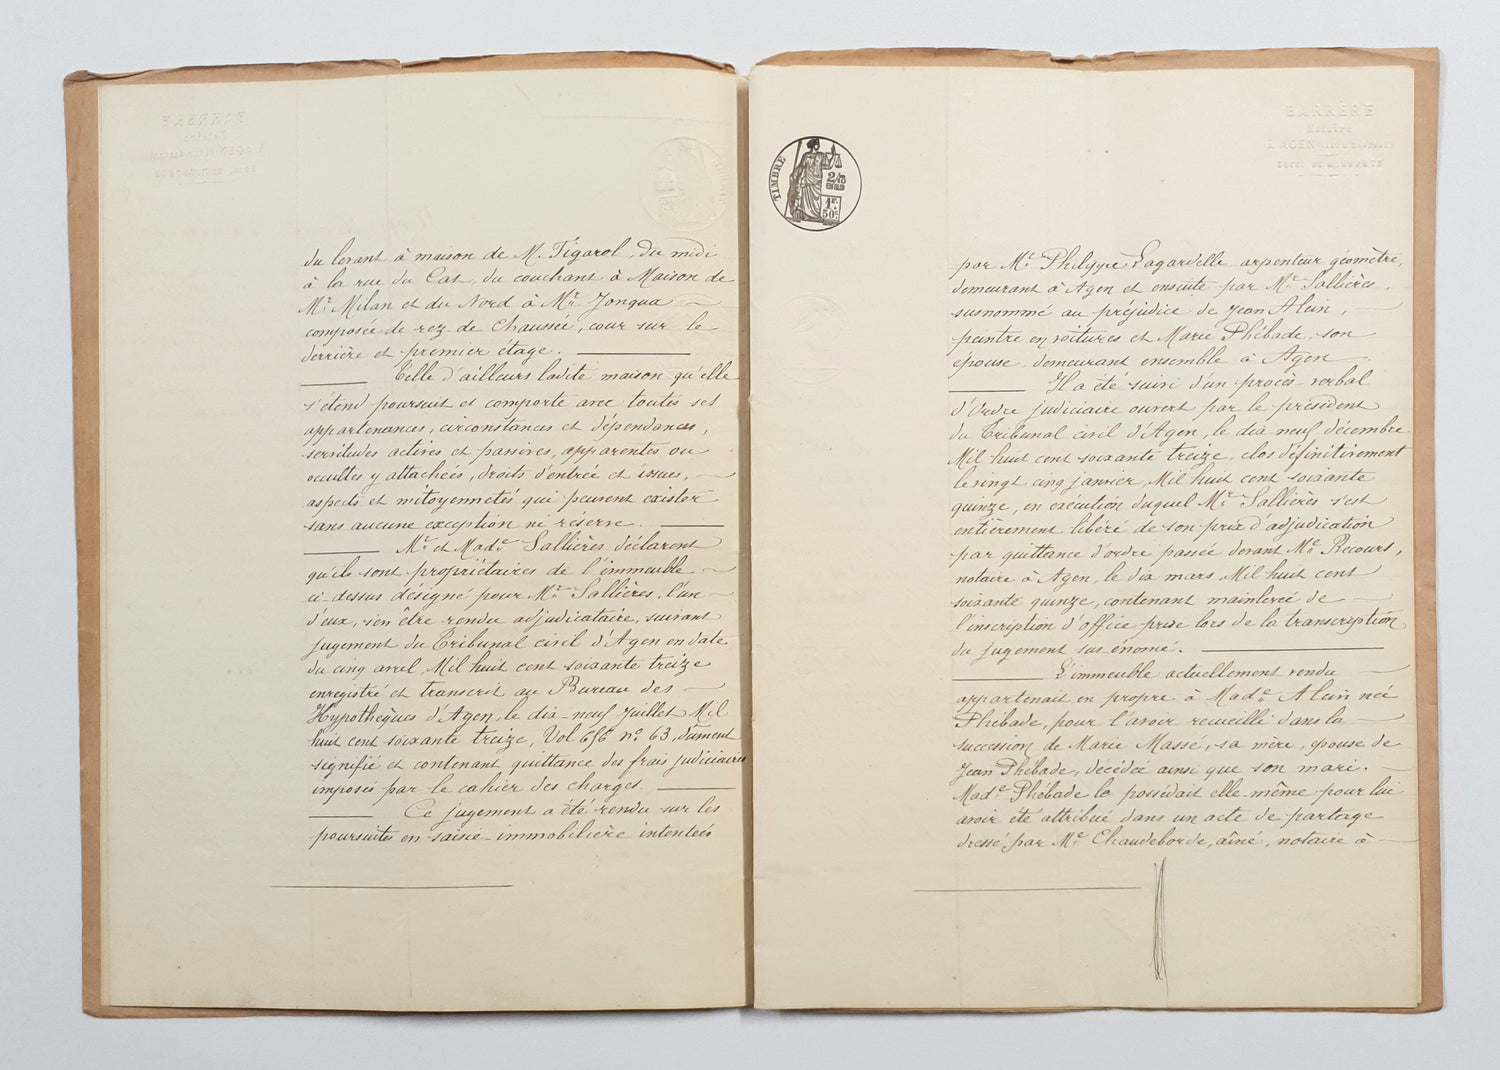 du levant à maison de M. Figarol, du midi
à la rue du Cat, du couchant à Maison de
Mr. Milan et du Nord à Mr. Jonqua —
composée de rez-de-Chaussée, cour sur le
derrière et premier étage.
Telle d'ailleurs ladite maison qu'elle
s'étend poursuit et comporte avec toutes ses
appartenances, circonstances et dépendances,
servitudes actives et passives, apparentes ou
occultes y attachées, droits d'entrée et issues, —
aspects et mitoyennetés qui peuvent exister
sans aucune exception ni réserve.
Mr. et Made. Sallières déclarent
qu'ils sont propriétaires de l'immeuble —
ci-dessus désigné pour Mr. Sallières, l'un —
d'eux, s'en être rendu adjudicataire, suivant
jugement du Tribunal civil d'Agen en date
du cinq avril, Mil huit cent soixante treize
enregistré et transcrit au Bureau des —
Hypothèques d'Agen, le dix-neuf Juillet Mil
huit cent soixante treize, Vol. no. 63, dûment
signifié et contenant quittance des frais judiciaires
imposés par le cahier des charges.
Ce jugement a été rendu sur les
poursuites en saisie-immobilière intentées
TIMBRE
2/10
EN SUS
1F.
50c.
BARRÈRE
Notaire
À AGEN
SUCCr. DE
par Mr. Philippe Lagardelle arpenteur géomètre,
demeurant à Agen et ensuite par Mr. Sallières,
susnommé au préjudice de Jean Alein, —
peintre en voitures et Marie Phébade, son
épouse demeurant ensemble à Agen —.
Il a été suivi d'un procès verbal
d'Ordre judiciaire ouvert par le président
du Tribunal civil d'Agen, le dix neuf décembre
Mil huit cent soixante treize, clos définitivement
le vingt cinq janvier, Mil huit cent soixante
quinze, en exécution duquel Mr. Sallières s'est
entièrement libéré de son prix d'adjudication
par quittance d'ordre passée devant Me. Recours,
notaire à Agen, le dix mars, Mil huit cent
soixante quinze, contenant mainlevée de —
l'inscription d'office prise lors de la transcription
du jugement sus énomé.
L'immeuble actuellement vendu —
appartenait en propre à Made. Alein née
Phébade, pour l'avoir recueilli dans la —
succession de Marie Massé, sa mère, épouse de
Jean Phébade, décédée ainsi que son mari. —
Made. Phébade le possédait elle même pour lui
avoir été attribué dans un acte de partage
dressé par Me. Chaudeborde, aîné, notaire à —